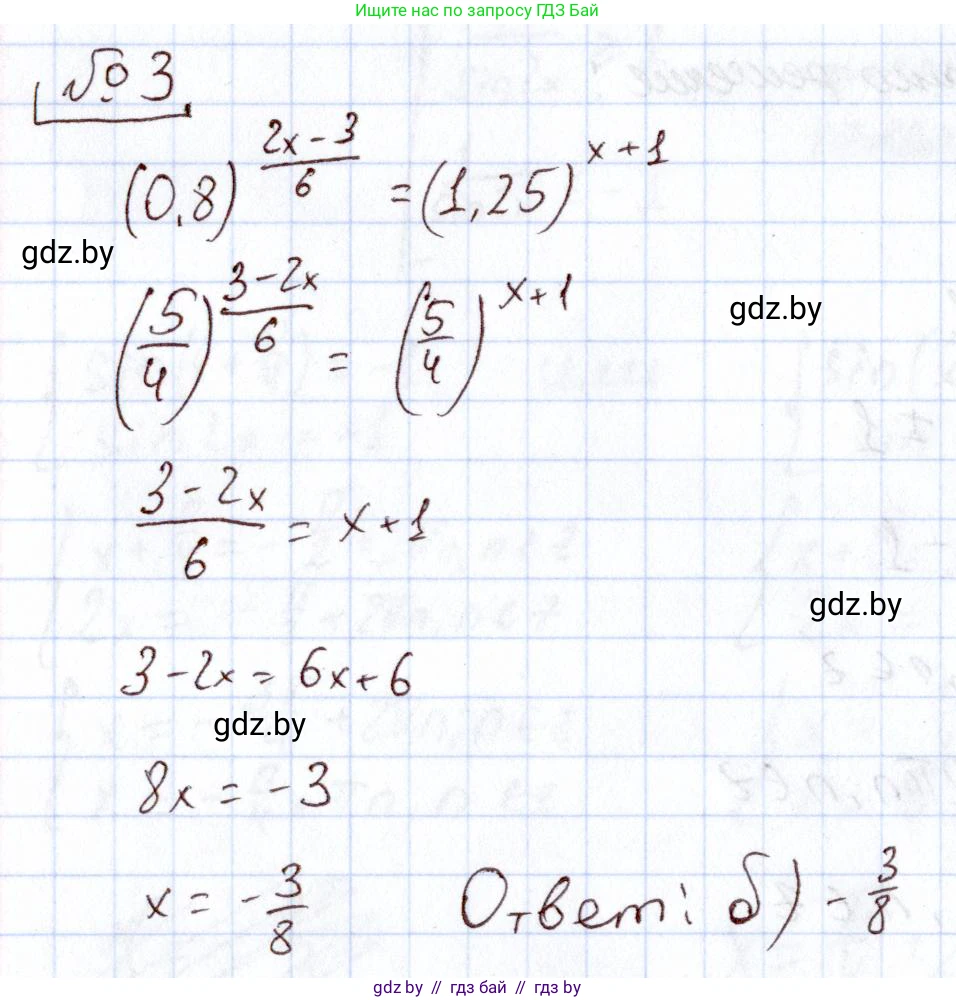 Ищите нас по запросу ГДЗ Бай
№ 3
(0,8)^((2x-3)/6) = (1,25)^(x+1)
gdz.by
(5/4)^((3-2x)/6) = (5/4)^(x+1)
gdz.by
(3-2x)/6 = x+1
gdz.by
3-2x = 6x+6
gdz.by
8x = -3
x = -3/8 Ответ: б) -3/8
gdz.by // гдз бай // gdz by